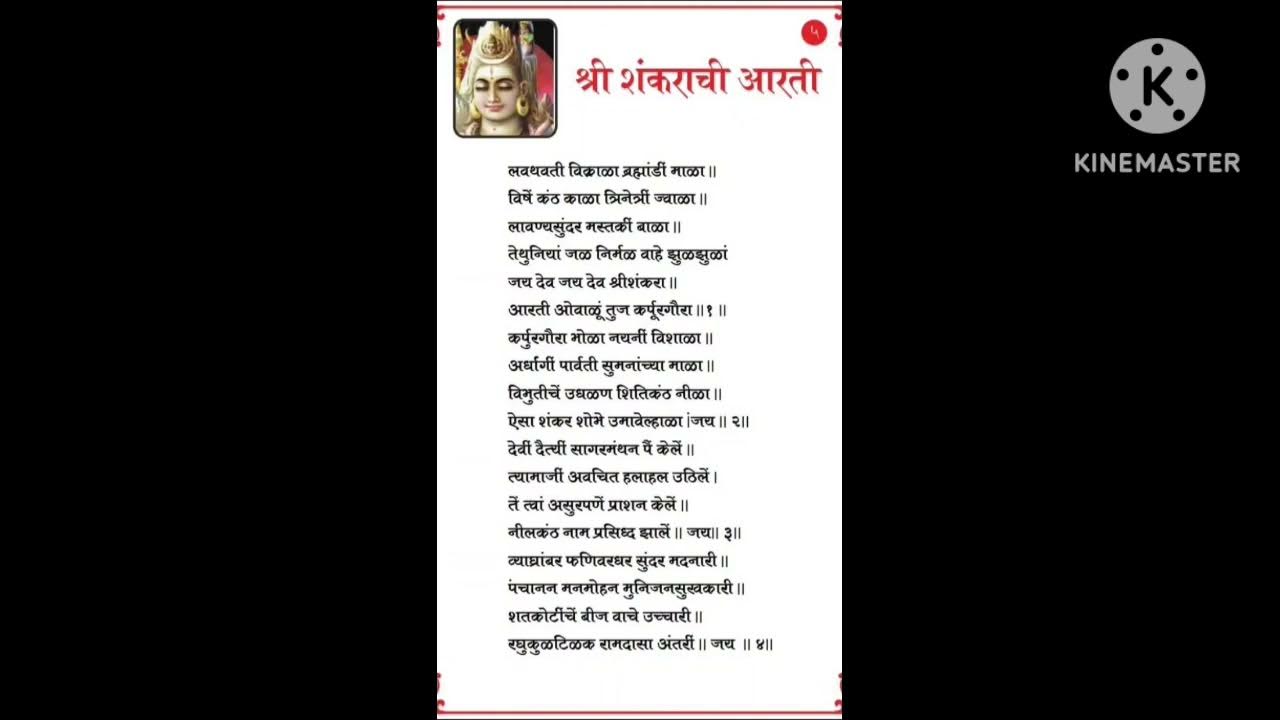 ५
श्री शंकराची आरती
लवथवती विक्राळा ब्रह्मांडीं माळा ॥
विषें कंठ काळा त्रिनेत्रीं ज्वाळा ॥
लावण्यसुंदर मस्तकीं बाळा ॥
तेथुनियां जळ निर्मळ वाहे झुळझुळां
जय देव जय देव श्रीशंकरा ॥
आरती ओवाळूं तुज कर्पूरगौरा ॥१ ॥
कर्पुरगौरा भोळा नयनीं विशाळा ॥
अर्धांगीं पार्वती सुमनांच्या माळा ॥
विभुतीचें उधळण शितिकंठ नीळा ॥
ऐसा शंकर शोभे उमावेल्हाळा |जय ॥ २॥
देवीं दैत्यीं सागरमंथन पैं केलें ॥
त्यामाजीं अवचित हलाहल उठिलें |
तें त्वां असुरपणें प्राशन केलें ॥
नीलकंठ नाम प्रसिध्द झालें ॥ जय॥ ३॥
व्याघ्रांबर फणिवरधर सुंदर मदनारी ॥
पंचानन मनमोहन मुनिजनसुखकारी ॥
शतकोटींचें बीज वाचे उच्चारी ॥
रघुकुळटिळक रामदासा अंतरीं ॥ जय ॥ ४॥
K
KINEMASTER